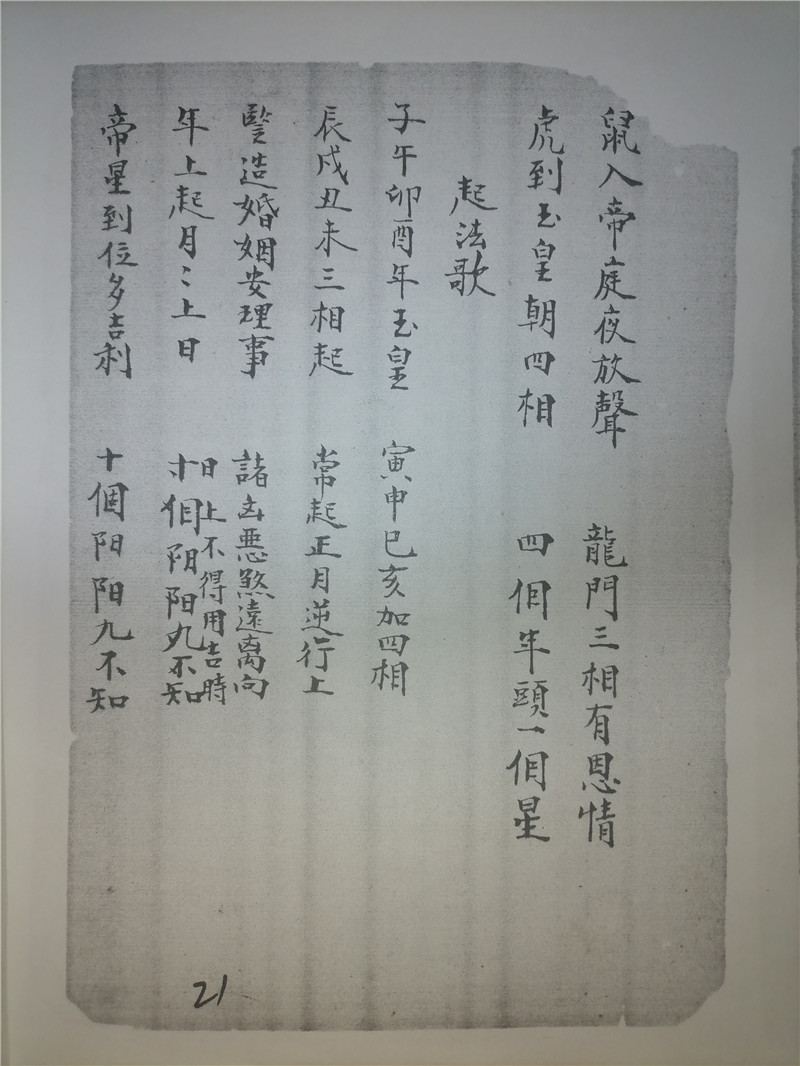 鼠入帝庭夜放聲 龍門三相有恩情
虎到玉皇朝四相 四個年頭一個星
起法歌
子午卯酉年玉皇 寅申巳亥加四相
辰戍丑未三相起 常起正月逆行上
豎造婚姻安理事 諸凶惡煞遠离向
年上起月〻上日 日上不得用吉時
十個阴阳九不知
帝星到位多吉利 十個阴阳九不知
21